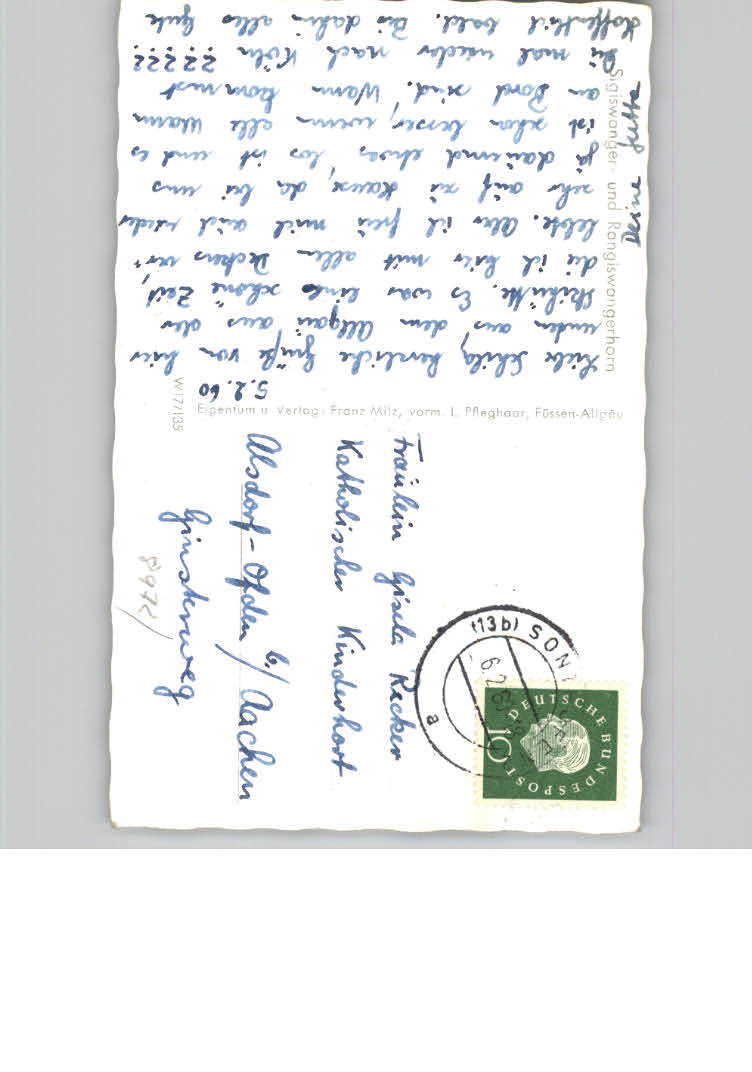 5.2.60
Liebe Gisela, herzliche Grüße von hier
unten aus dem Allgäu aus der
Skihütte. Es war eine schöne Zeit,
die ich hier mit allen Deckens ver-
lebte. Aber ich freu mich auch wieder
sehr auf zu Hause, da bei uns
ja dauernd etwas los ist und es
ist schon besser, wenn alle Mann
an Bord sind. Wann kommst
Du mal wieder nach Köln ?????
Hoffentlich bald. Bis dahin alles Gute
Deine Jutta
Sigiswanger- und Rangiswangerhorn
Eigentum u. Verlag: Franz Milz, vorm. L. Pfleghaar, Füssen-Allgäu
W 17/135
Fräulein Gisela Recker
Katholischer Kinderhort
Alsdorf-Ofden b./ Aachen
Ginsterweg
8972/
(13b) SONT
6.2.
a
DEUTSCHE BUNDESPOST
10